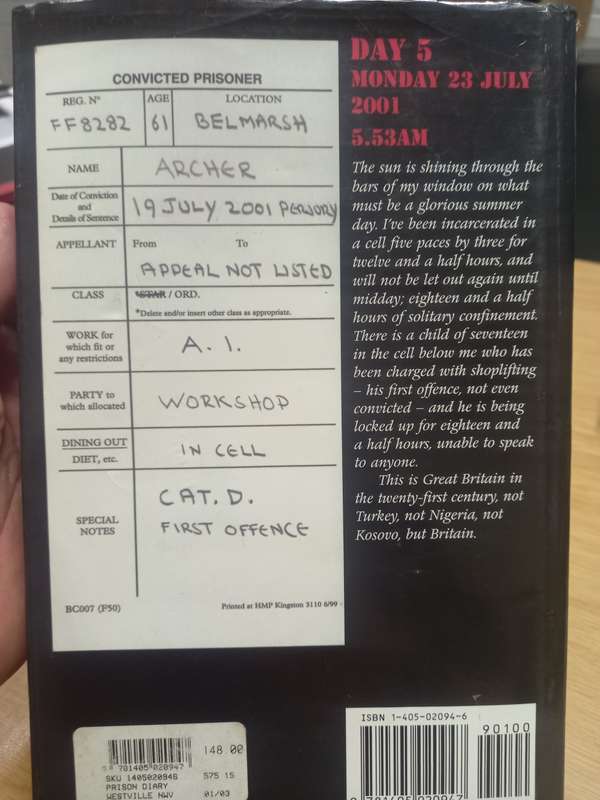 CONVICTED PRISONER
REG. Nº AGE LOCATION
FF8282 61 BELMARSH
NAME ARCHER
Date of Conviction
and
Details of Sentence
19 JULY 2001 PERJURY
APPELLANT From To
APPEAL NOT LISTED
CLASS *STAR / ORD.
*Delete and/or insert other class as appropriate.
WORK for
which fit or
any restrictions
A. 1.
PARTY to
which allocated
WORKSHOP
DINING OUT
DIET, etc.
IN CELL
SPECIAL
NOTES
CAT. D.
FIRST OFFENCE
BC007 (F50) Printed at HMP Kingston 3110 6/99
DAY 5
MONDAY 23 JULY
2001
5.53AM
The sun is shining through the
bars of my window on what
must be a glorious summer
day. I've been incarcerated in
a cell five paces by three for
twelve and a half hours, and
will not be let out again until
midday; eighteen and a half
hours of solitary confinement.
There is a child of seventeen
in the cell below me who has
been charged with shoplifting
– his first offence, not even
convicted – and he is being
locked up for eighteen and
a half hours, unable to speak
to anyone.
This is Great Britain in
the twenty-first century, not
Turkey, not Nigeria, not
Kosovo, but Britain.
148 00
9 781405 020947
SKU 1405020946 575 15
PRISON DIARY
WESTVILLE NWV 01/03
ISBN 1-405-02094-6
90100
9 781405 020947